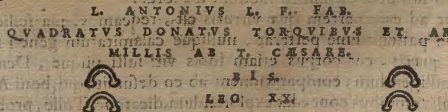 L. ANTONIVS L. F. FAB.
QVADRATVS DONATVS TORQVIBVS ET AR
MILLIS AB T. CÆSARE.
BIS.
LEG XX.